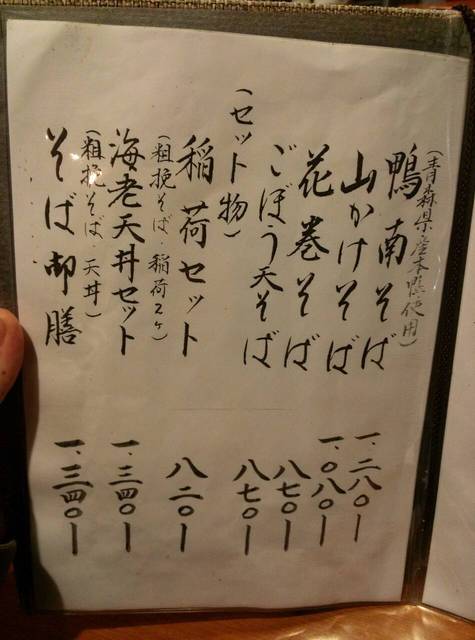 (青森県産本鴨使用)
鴨南そば 一、二八〇ー
山かけそば 一、〇八〇ー
花巻そば 八七〇ー
ごぼう天そば 八七〇ー
(セット物)
稲荷セット 八二〇ー
(粗挽そば・稲荷2ヶ)
海老天丼セット 一、三四〇ー
(粗挽そば・天丼)
そば御膳 一、三四〇ー